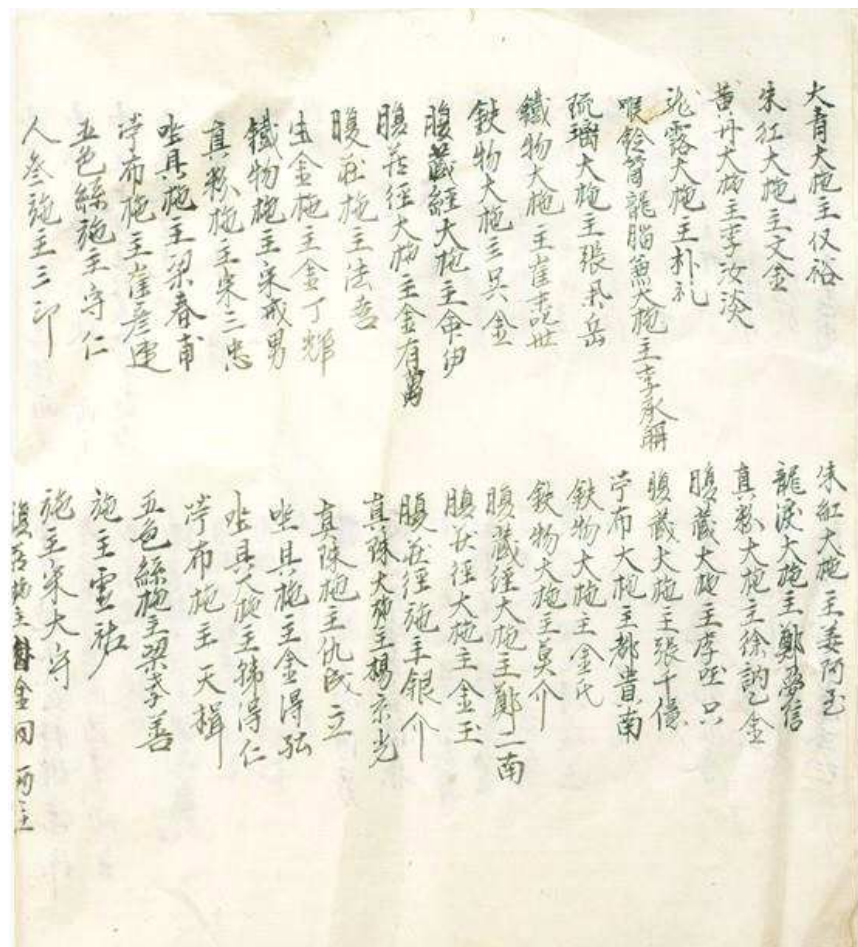 大青大施主仅裕
朱紅大施主文金
黄丹大施主李汝淡
大施主朴礼
喉鈴筒龍腦兼大施主李承
琉璃大施主張吊岳
鐵物大施主崔世
鉄物大施主吳金
腹藏経大施主申
腹莊徑大施主金有萬
腹莊施主法杏
生金施主金丁輝
鐵物施主宋戒男
真粉施主宋三忠
坐具施主梁春甫
苧布施主崔彦連
五色絲施主守仁
人參施主三印
朱紅大施主姜阿玉
龍淚大施主鄭夢信
真粉大施主徐訥金
腹蔵大施主李只
腹蔵大施主張千億
苧布大施主都貴南
鉄物大施主金氏
鉄物大施主莫介
腹藏経大施主鄭二南
腹莊徑大施主金玉
腹莊徑施主銀介
真珠大施主楊京光
真珠施主仇成立
坐具施主金得弘
坐具大施主韓得仁
苧布施主天楫
五色絲施主梁孝善
施主霊祐
施主宋大守
施主金同兩主